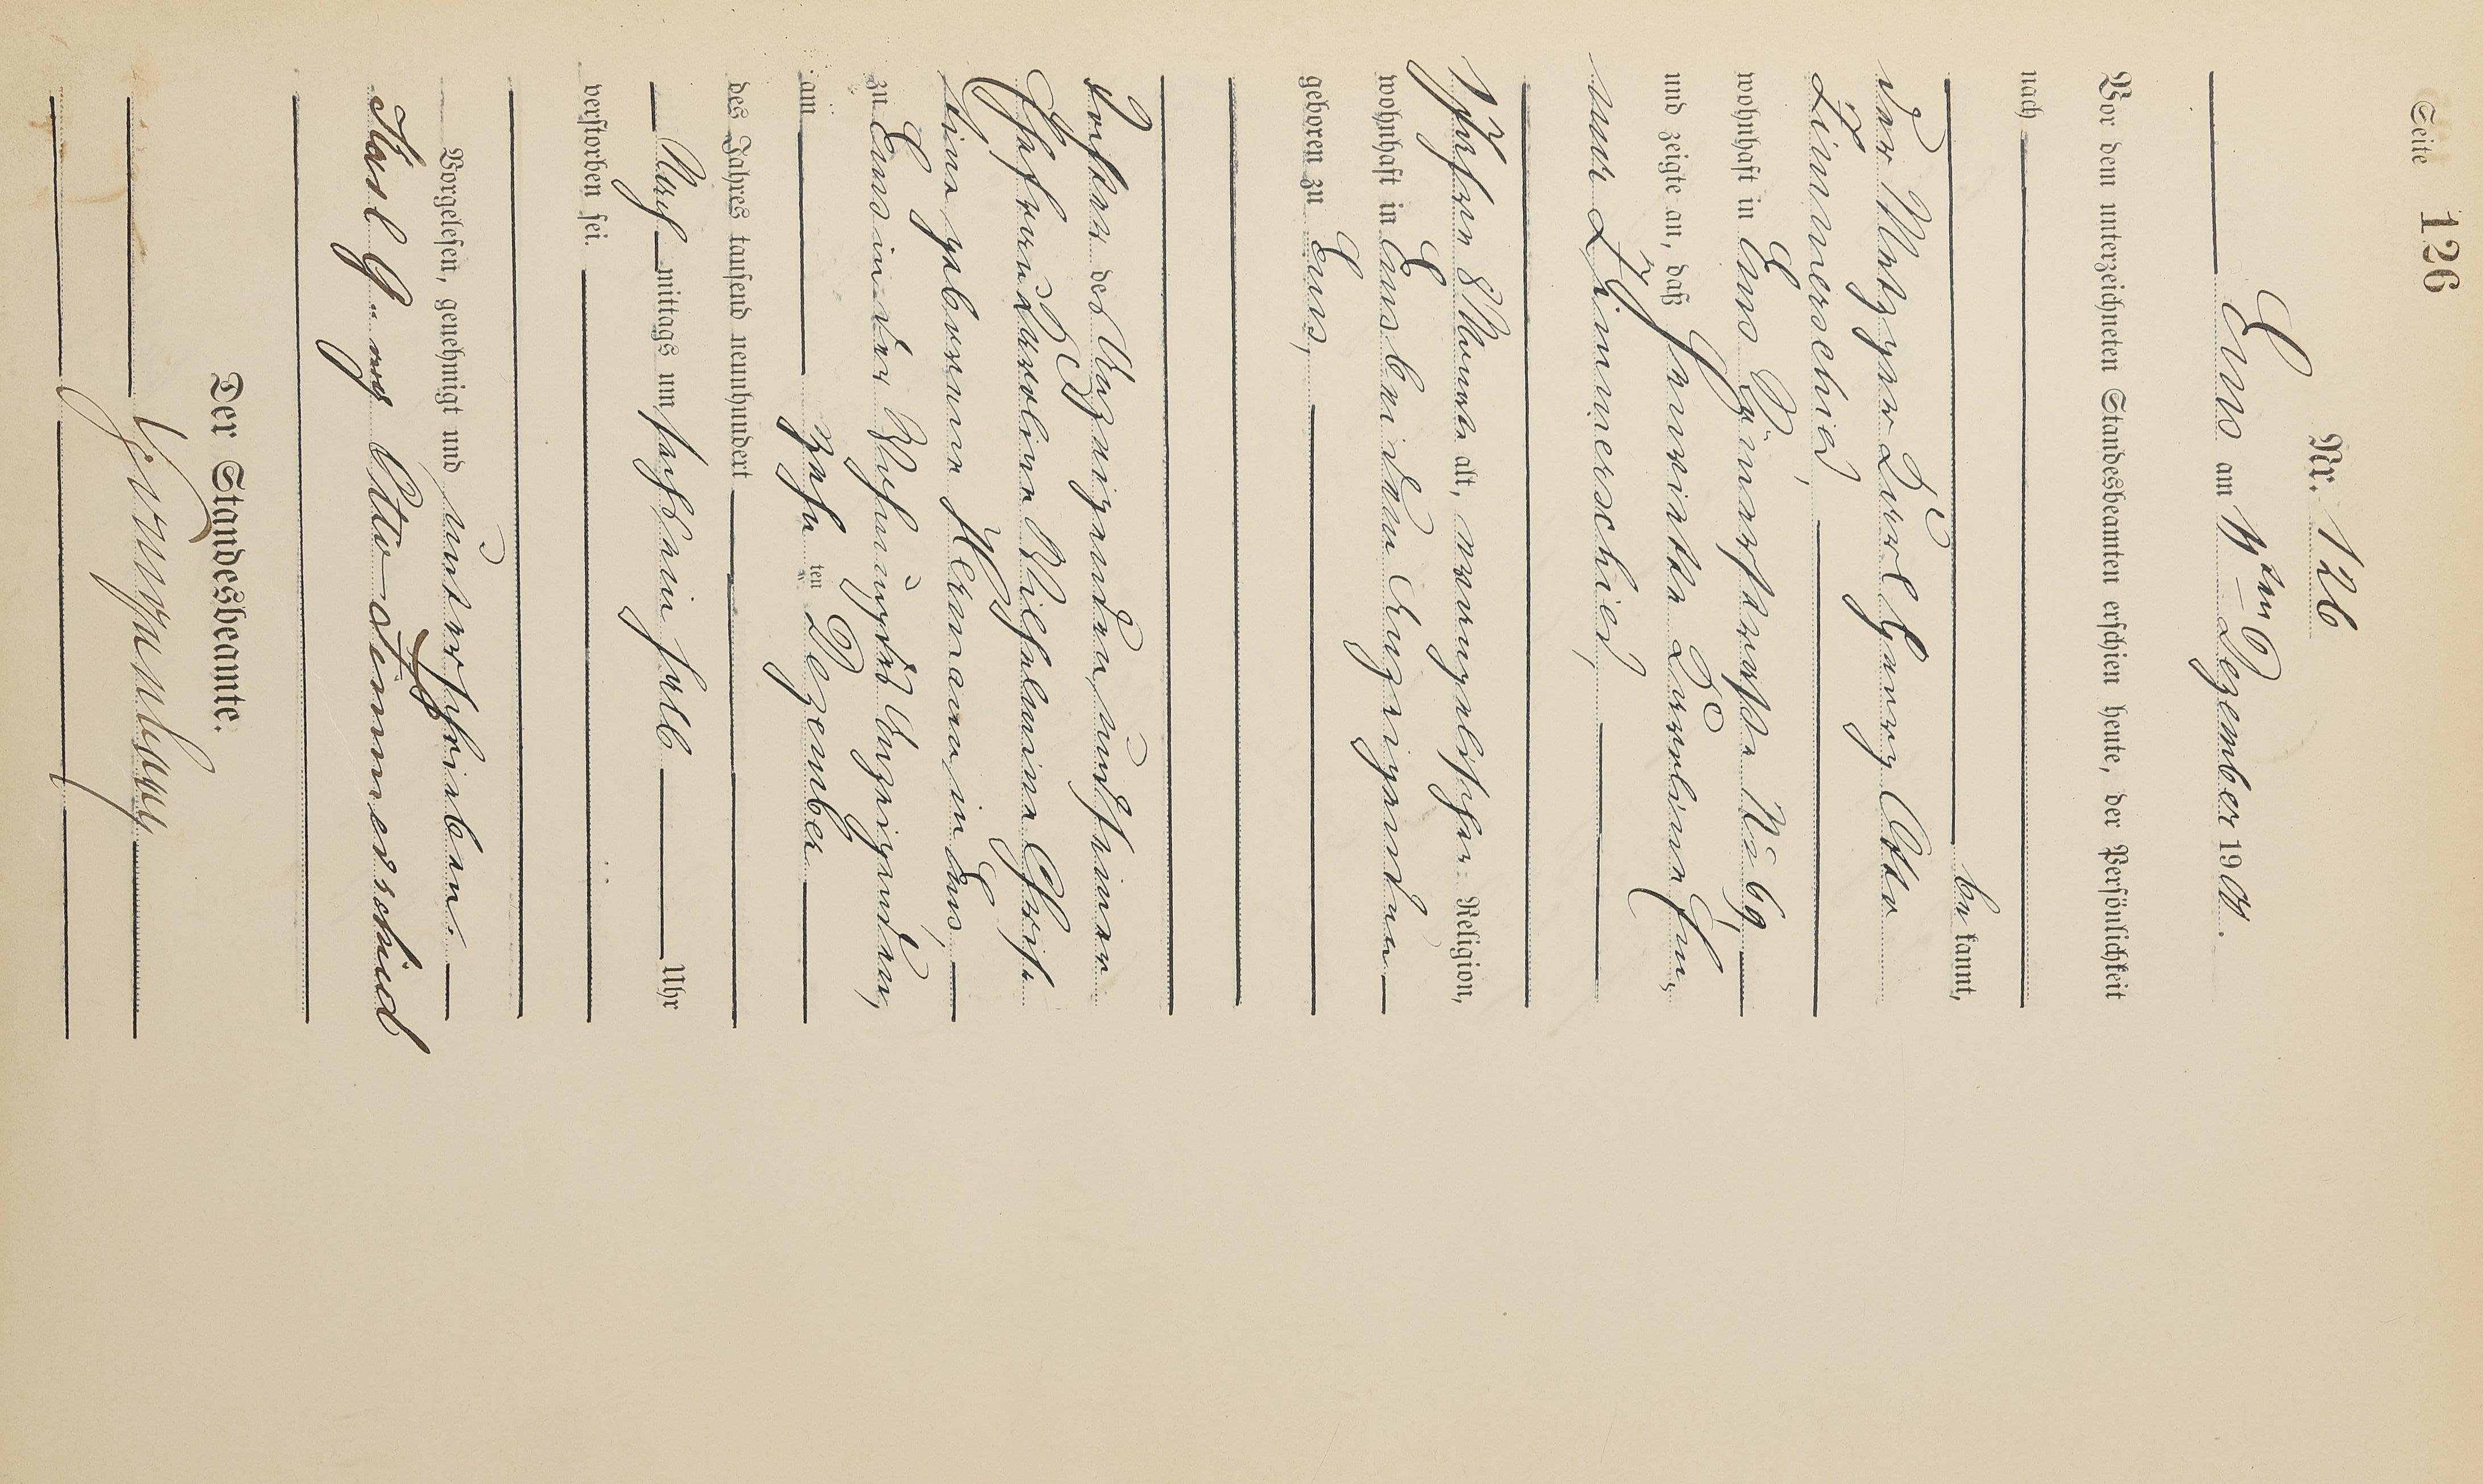 Seite 126
Nr. 126
Ems am 11ten Dezember 1901.
Vor dem unterzeichneten Standesbeamten erschien heute, der Persönlichkeit
nach
bekannt,
der Metzger Karl Georg Otto
Zimmerschied,
wohnhaft in Ems Römerstrasse No 69,
und zeigte an, daß Henriette Karoline Em,
ma Zimmerschied,
2 Jahre 8 Monate alt, evangelischer Religion,
wohnhaft in Ems bei dem Anzeigenden
geboren zu Ems,
Tochter des Anzeigenden, und seiner
Ehefrau Karoline Wilhelmine Christi
tine geborene Hermann in Ems,
zu Ems in der Wohnung des Anzeigenden,
am zehnten Dezember
des Jahres tausend neunhundert
Nach mittags um sechs ein halb Uhr
verstorben sei.
Vorgelesen, genehmigt und unterschrieben.
Karl Georg Otto Zimmerschied
Der Standesbeamte.